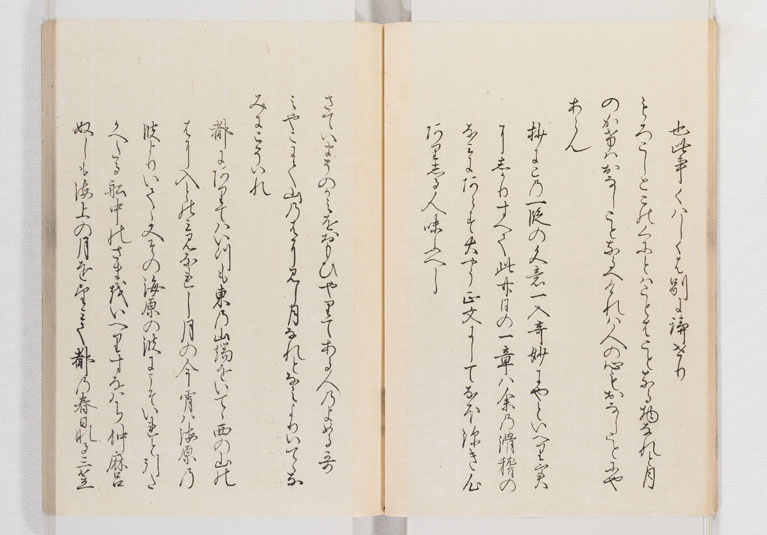 也此事くハしくは別に論せり
もろこしとこのくにとハことことなる物なれと月
のかけハおなしことなるへけれハ人の心もおなしことにや
あらん
抄にこの一段の文意一入奇妙にやといへり実
にしかり十八九此廿日の一章ハ余の滑稽の
なみにあらす大やう正文にしてなほ深き心
ありしる人味ふへし
さていまそのかみをおもひやりてある人のよめる哥
みやこにて山のはに見し月なれとなみよりいてゝな
みにこそいれ
都にありてハいつも東の山端をいてゝ西の山の
はに入しのみ見なれし月の今宵ハ海原の
波よりいてゝ又その海原の波にこそいると引た
かへたる船中のさまをいへりすなハち仲麻呂
ぬしも海上の月を望みて都の春日なる三笠